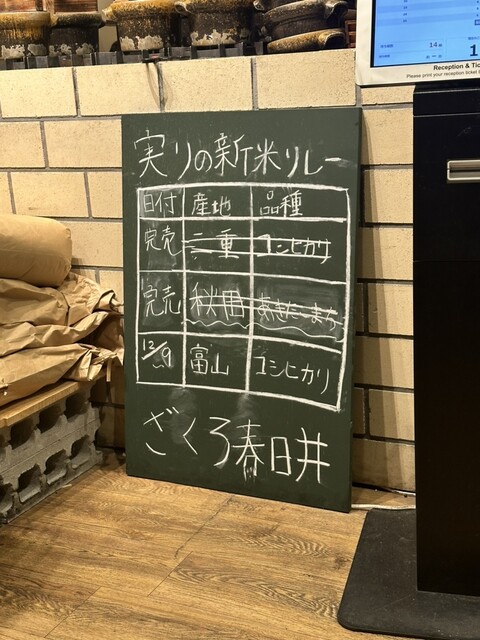 Reception & Tic
Please print your reception ticket
実りの新米リレー
日付 産地 品種
完売 三重 コシヒカリ
完売 秋田 あきたこまち
12/9 富山 コシヒカリ
ざくろ春日井